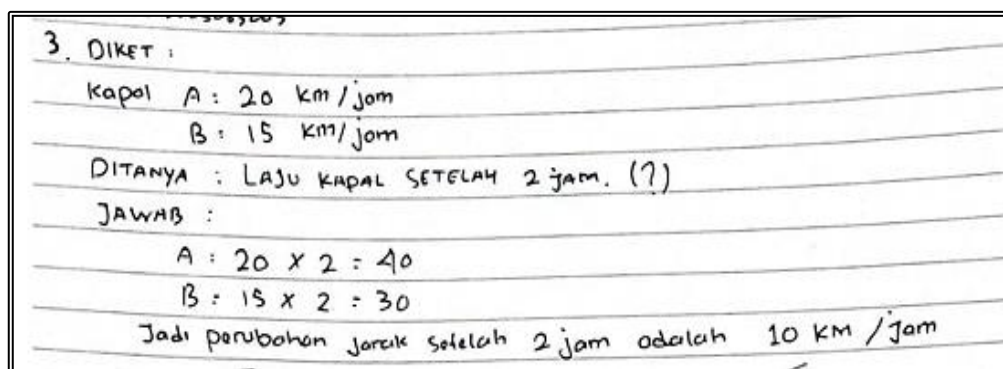 3. DIKET :
Kapal A : 20 km/jam
B : 15 km/jam
DITANYA : LAJU KAPAL SETELAH 2 jAM. (?)
JAWAB :
A : 20 x 2 = 40
B : 15 x 2 = 30
Jadi perubahan jarak setelah 2 jam adalah 10 KM /Jam